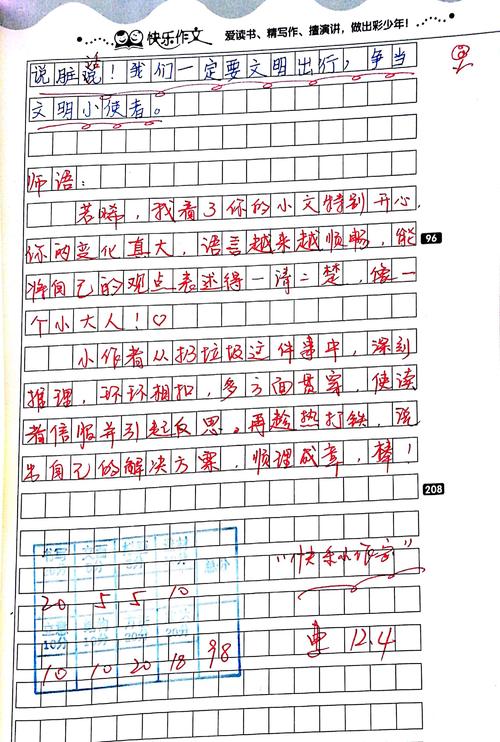 快乐作文 爱读书、精写作、擅演讲，做出彩少年！
说脏话！我们一定要文明出行，争当
文明小使者。
师语：
若晞，我看了你的小文特别开心，
你的变化真大，语言越来越顺畅，能
将自己的观点表述得一清二楚，像一
96
个小大人！♡
小作者从扔垃圾这件事中，深刻
推理，环环相扣，多方面贯穿，使读
者信服并引起反思。再趁热打铁，说
出自己的解决方案，顺理成章，棒！
208
"快乐小作家"
20 5 5 10
12.4
10 10 20 18 98